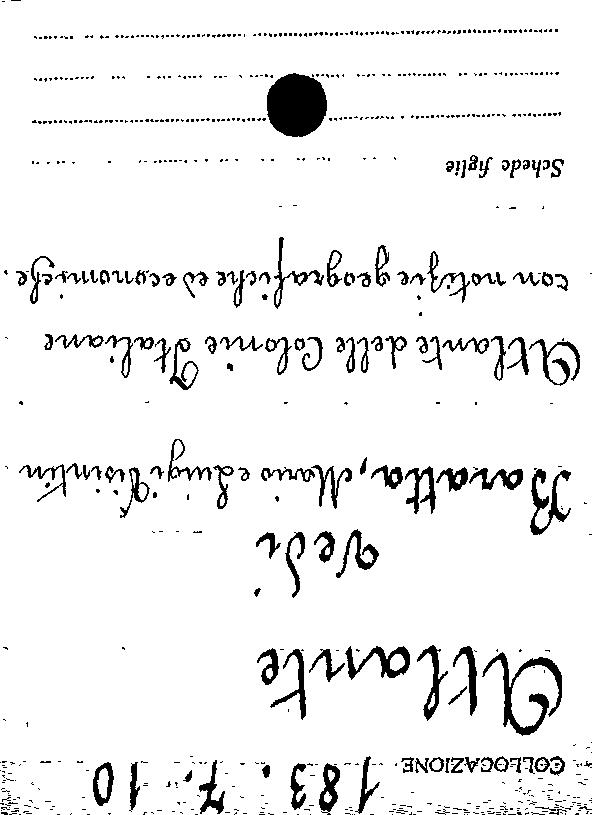 COLLOCAZIONE 183. 7. 10
Atlante
Vedi
Baratta, Mario e Luigi Visintin
Atlante delle Colonie Italiane
con notizie geografiche ed economiche.
Schede figlie